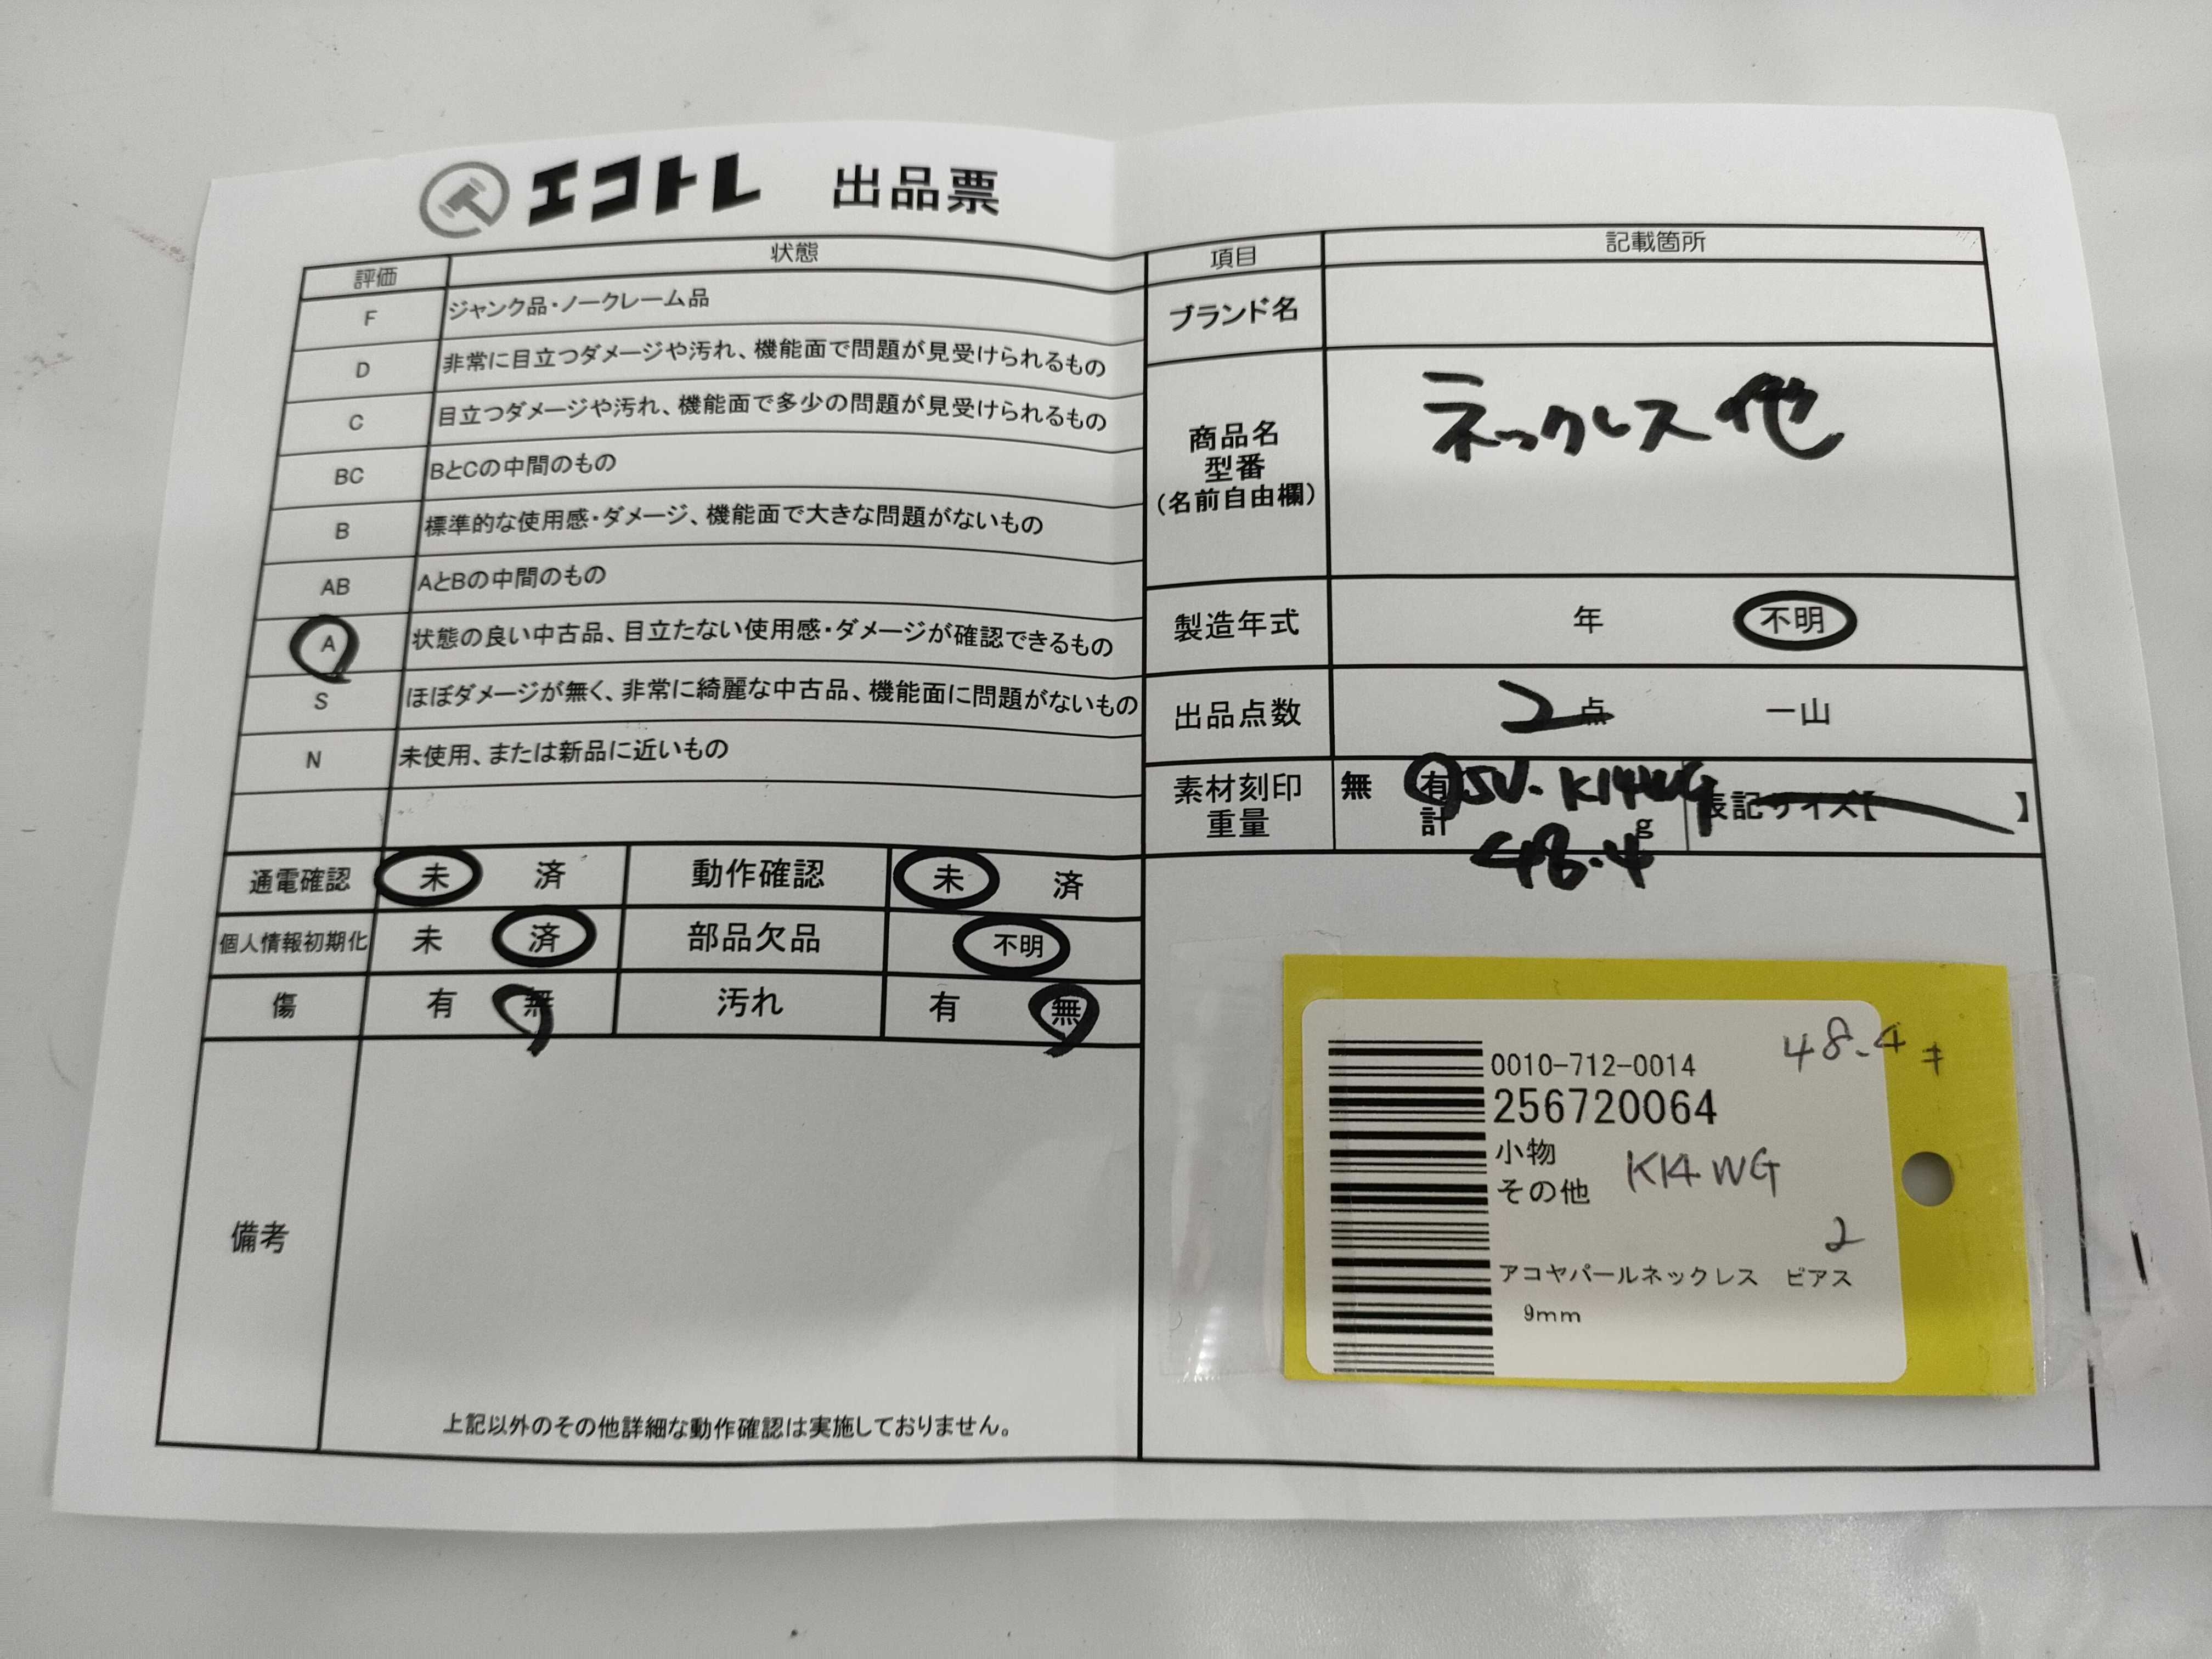 エコトレ 出品票
評価 状態
F ジャンク品・ノークレーム品
D 非常に目立つダメージや汚れ、機能面で問題が見受けられるもの
C 目立つダメージや汚れ、機能面で多少の問題が見受けられるもの
BC BとCの中間のもの
B 標準的な使用感・ダメージ、機能面で大きな問題がないもの
AB AとBの中間のもの
A 状態の良い中古品、目立たない使用感・ダメージが確認できるもの
S ほぼダメージが無く、非常に綺麗な中古品、機能面に問題がないもの
N 未使用、または新品に近いもの
通電確認 未 済 動作確認 未 済
個人情報初期化 未 済 部品欠品 不明
傷 有 無 汚れ 有 無
備考
上記以外のその他詳細な動作確認は実施しておりません。
項目 記載箇所
ブランド名
商品名
型番
(名前自由欄)
ネックレス他
製造年式 年 不明
出品点数 2点 一山
素材刻印 無 有 SV. K14WG
重量 計 48.4 g 表記サイズ【 】
0010-712-0014 48.4
256720064
小物
その他 K14WG
2
アコヤパールネックレス ピアス
9mm